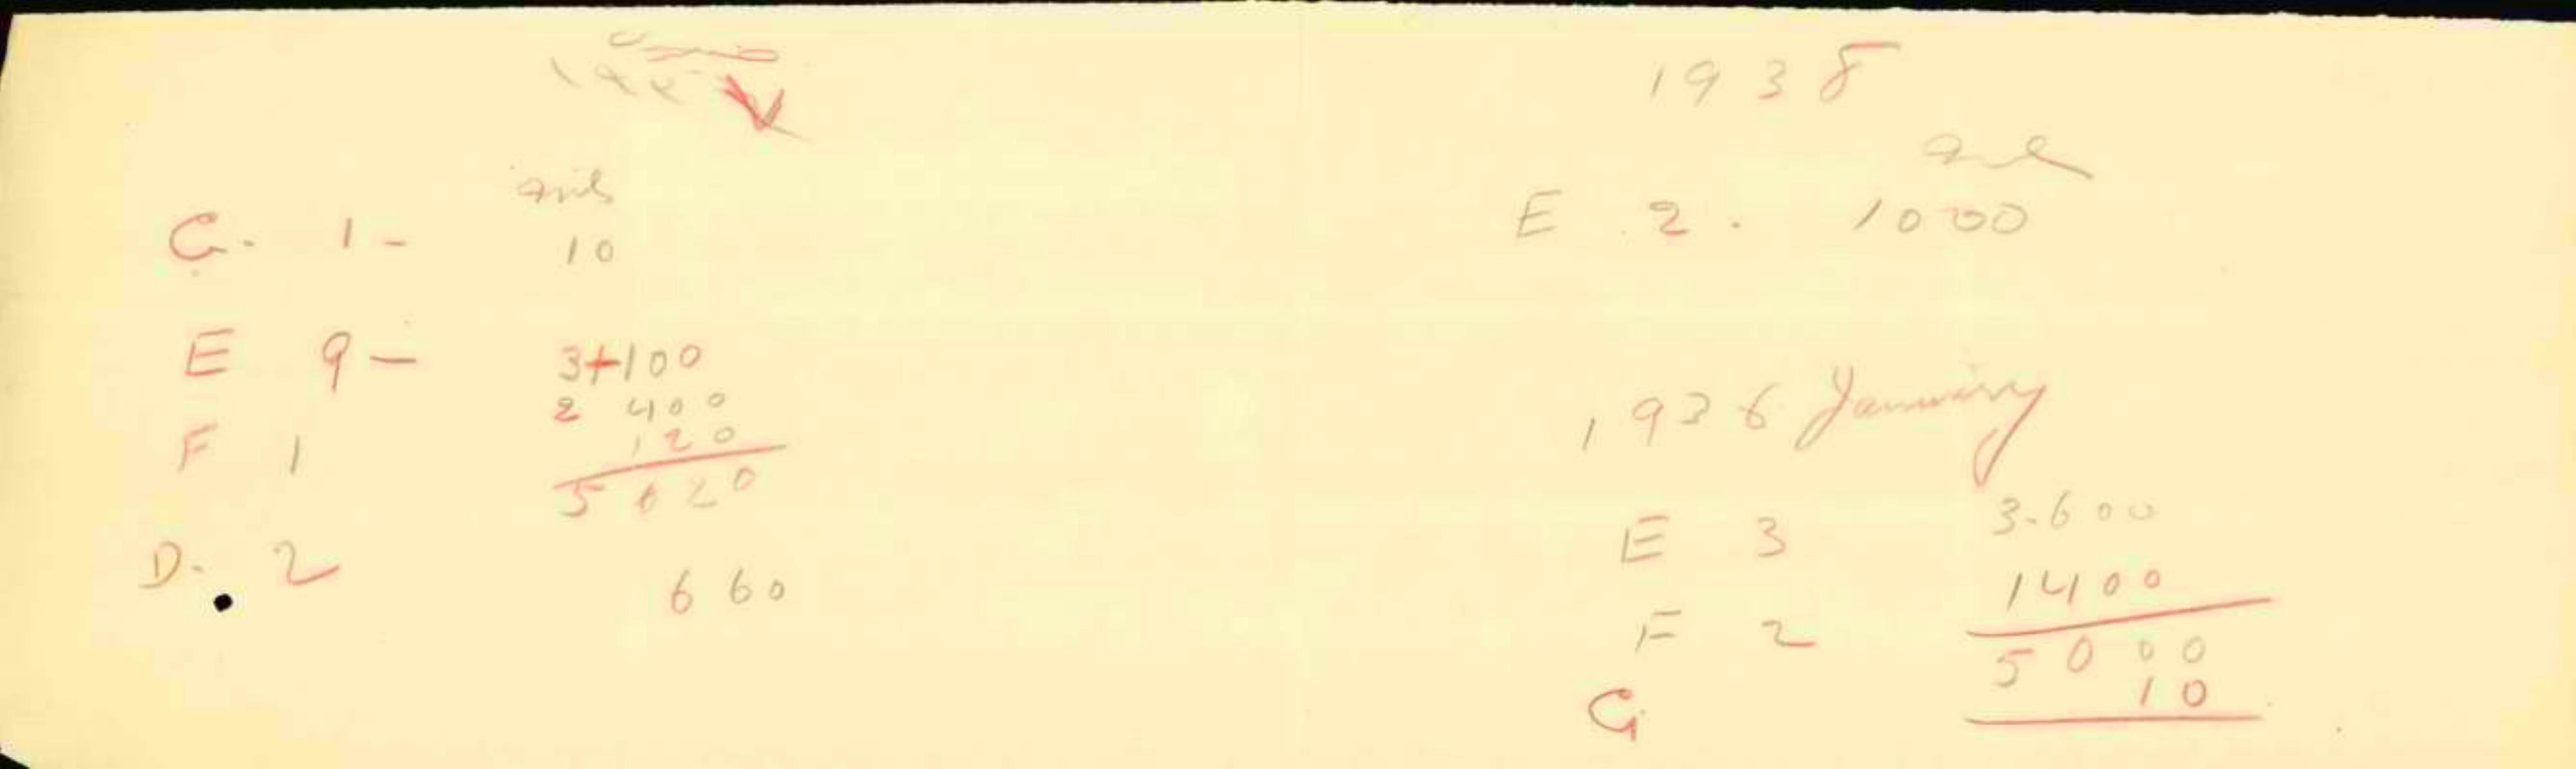 G. 1 - 10
E 9 - 3+100
2 400
F 1 120
5620
D. 2 660
1938
E 2. 1000
1936 January
E 3 3.600
1400
F 2
5000
G 10